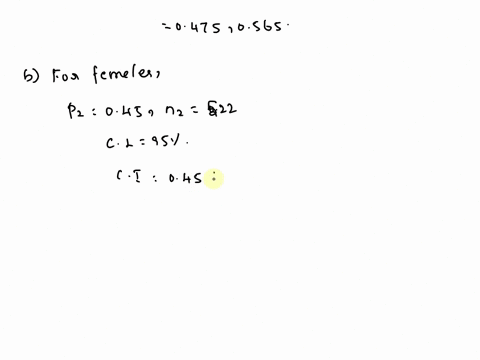 = 0.475, 0.565.
b) For femeles,
P2 : 0.45, n2 = 522
C.L = 95%.
C.I : 0.45 :